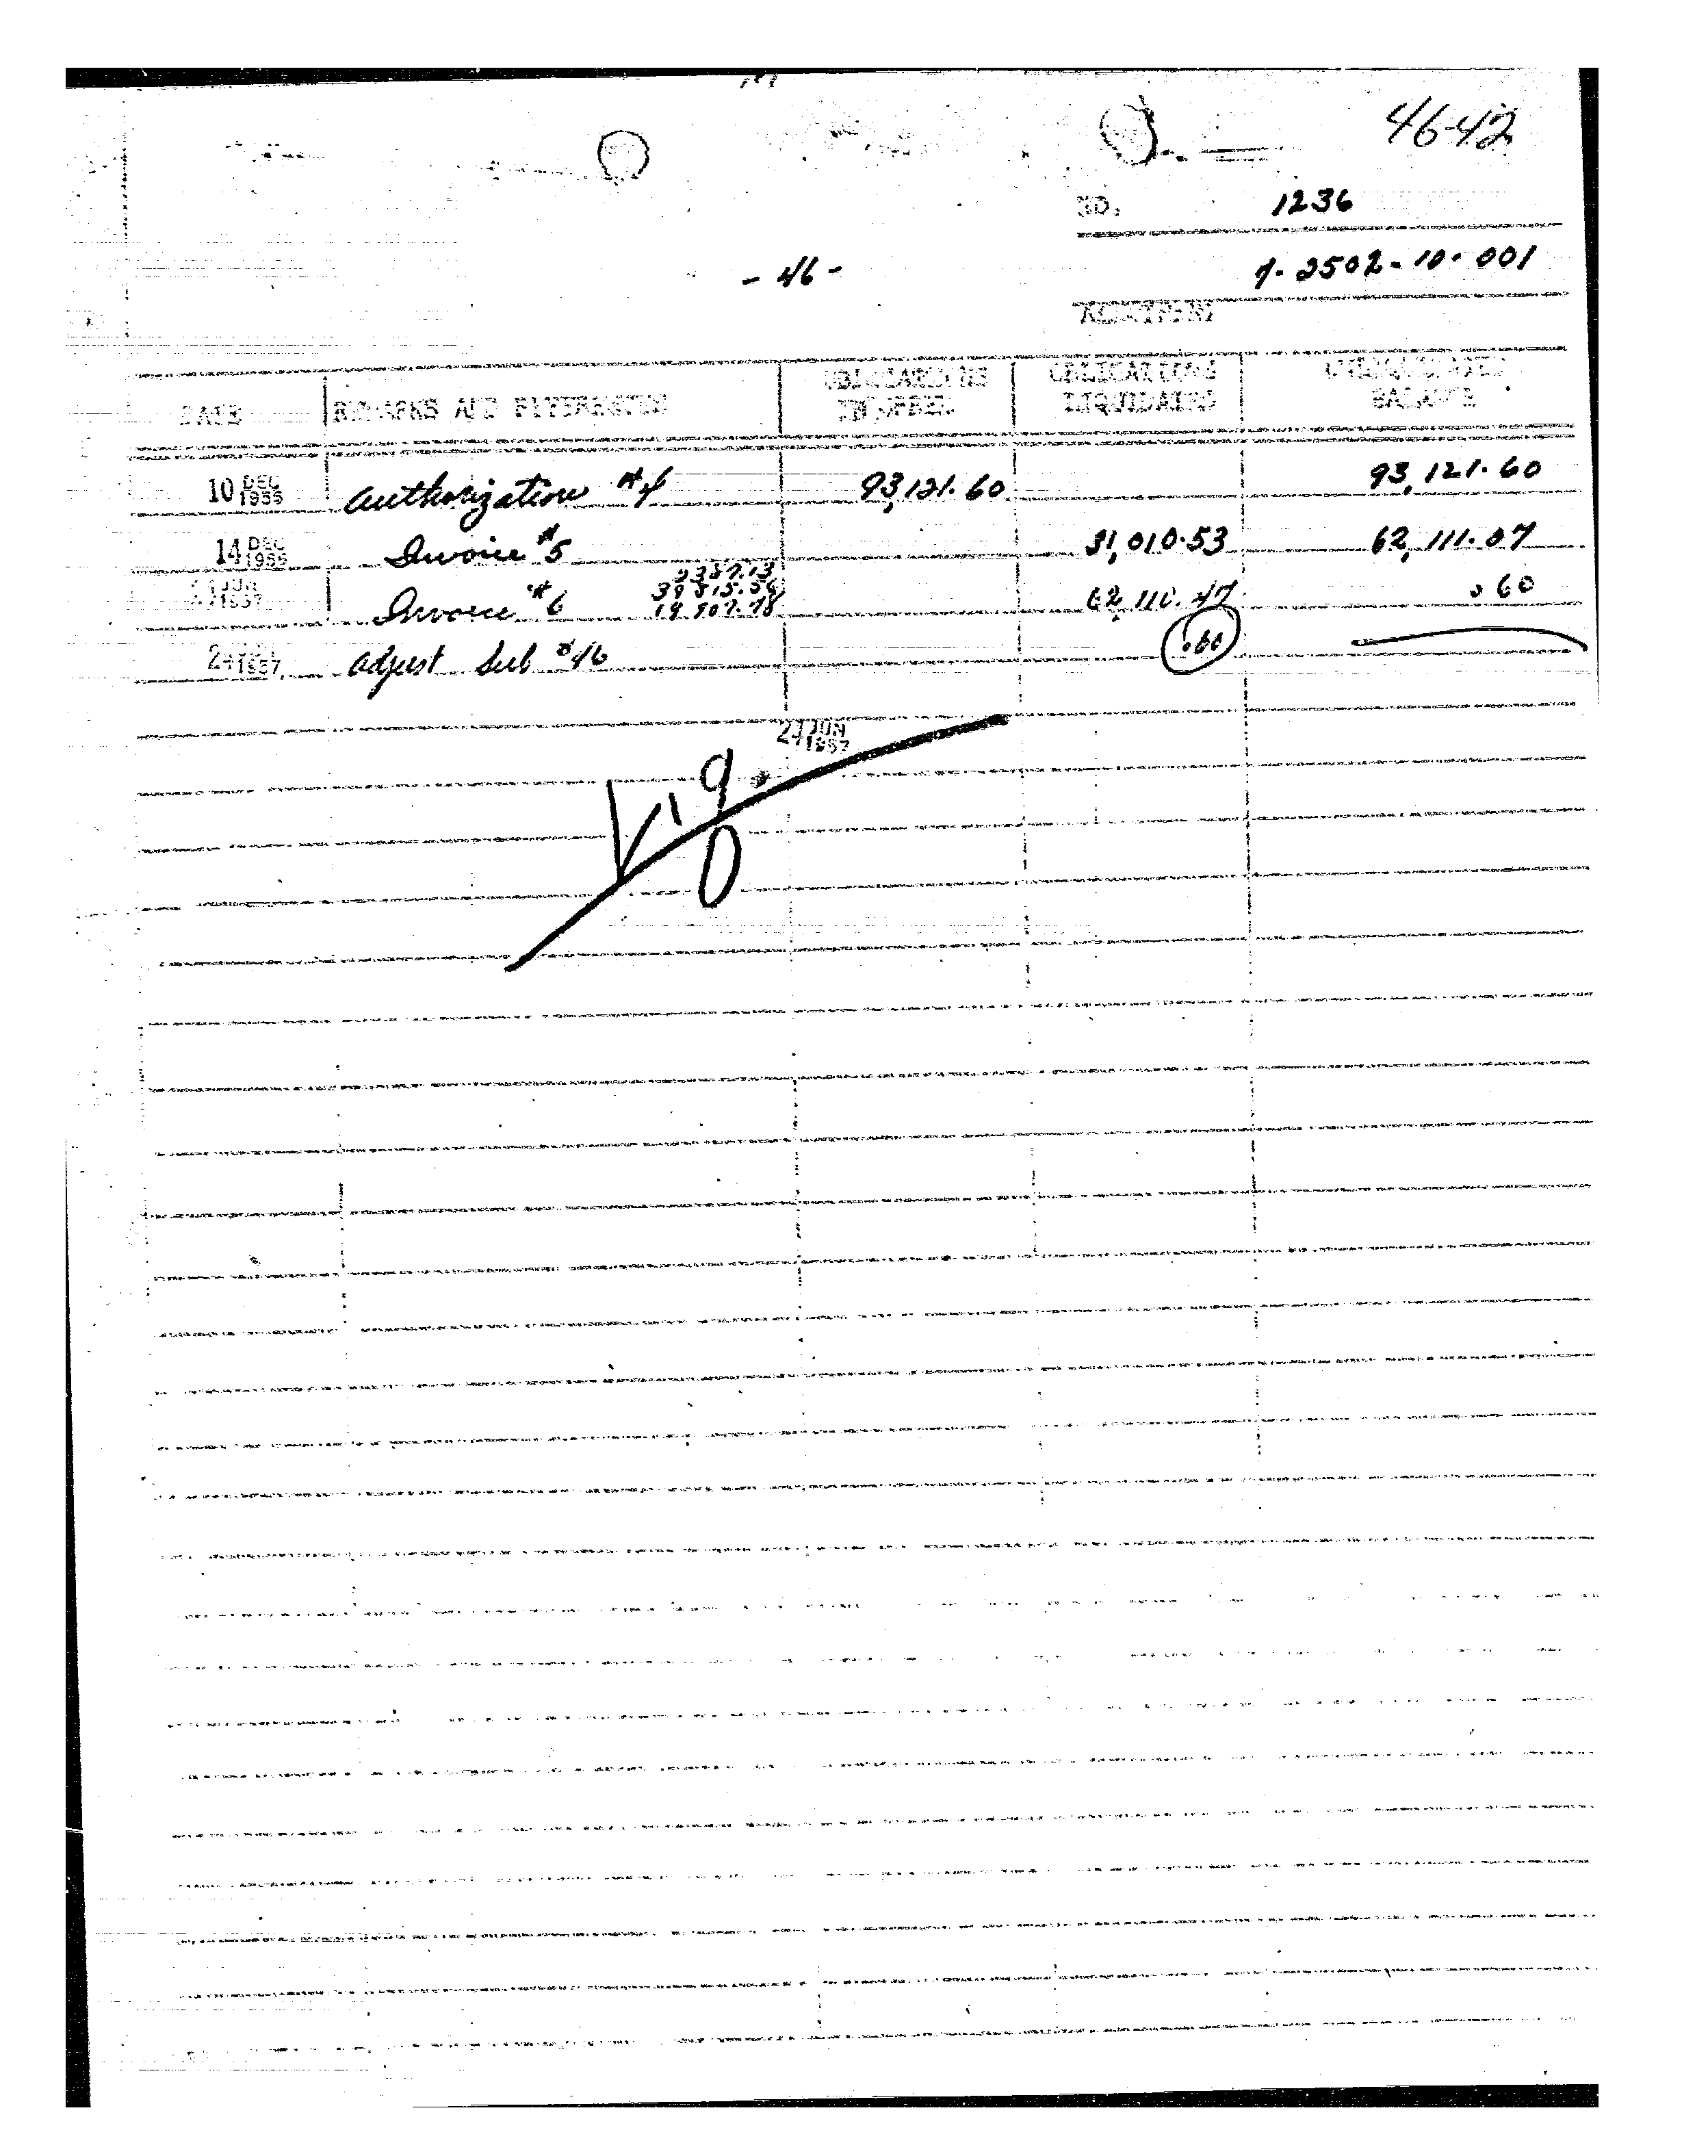 46-42
NO. 1236
- 46 -
7-2502-10-001
ALLOTMENT
DATE REMARKS AND REFERENCE OBLIGATIONS INCURRED OBLIGATIONS LIQUIDATED UNLIQUIDATED BALANCE
10 DEC 1956 Authorization # 93,121.60 93,121.60
14 DEC 1956 Invoice #5 31,010.53 62,111.07
JUN 1957 Invoice #6 62,110.47 .60
24 1957 adjust Sub #46 .60
24 JUN 1957